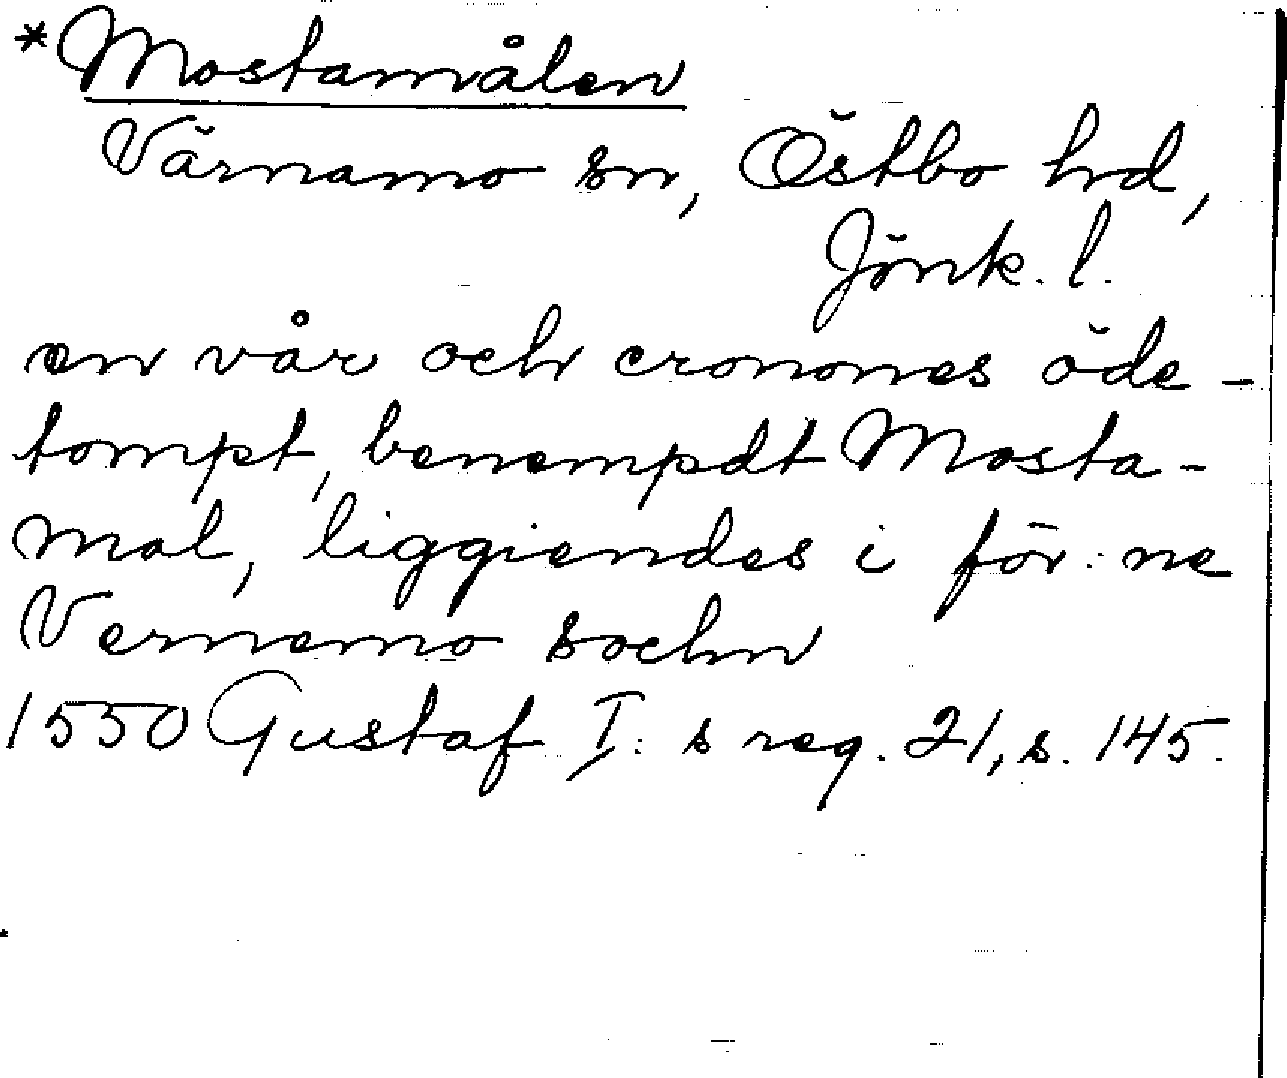 *Mostamålen
Värnamo sn, Östbo hd,
Jönk. l.
en vår och cronones öde-
tompt, benempdt Mosta-
mal, liggiendes i för:ne
Vernemo sochn
1550 Gustaf I:s reg. 21, s. 145.